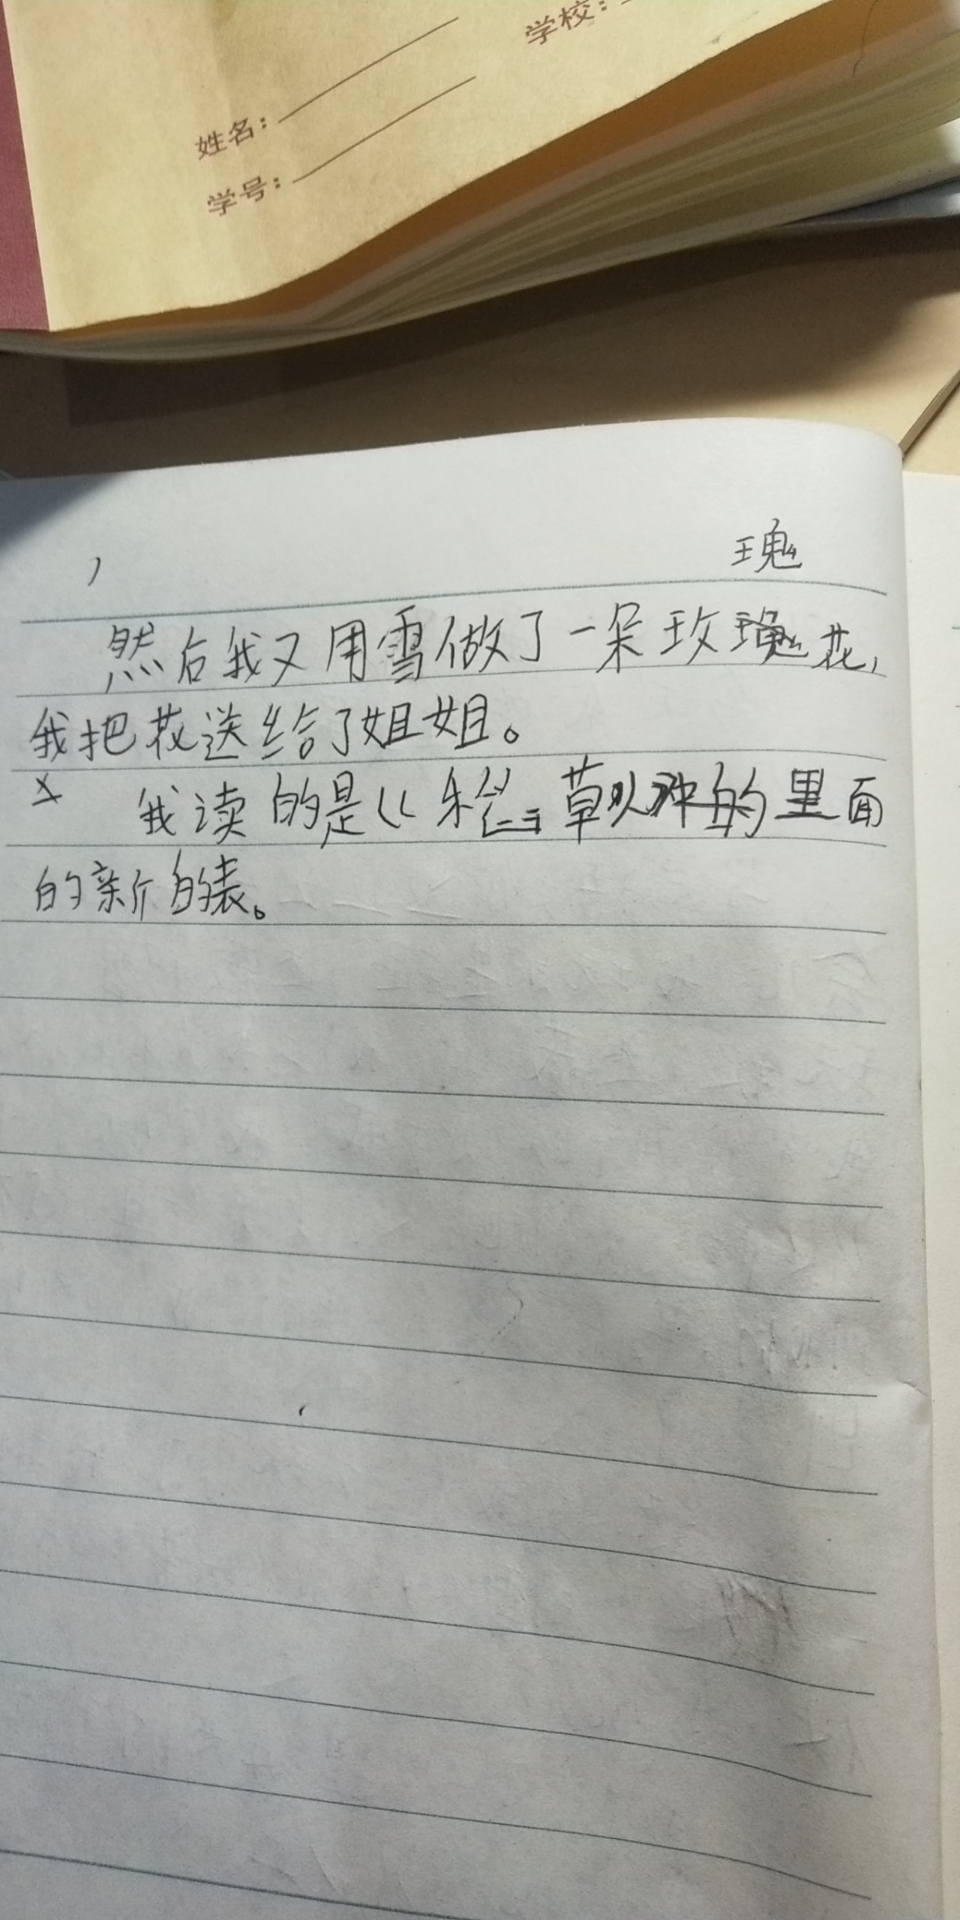 学校:
姓名:
学号:
瑰
然后我又用雪做了一朵玫瑰花,
我把花送给了姐姐。
我读的是《 草 的里面
的新的表。